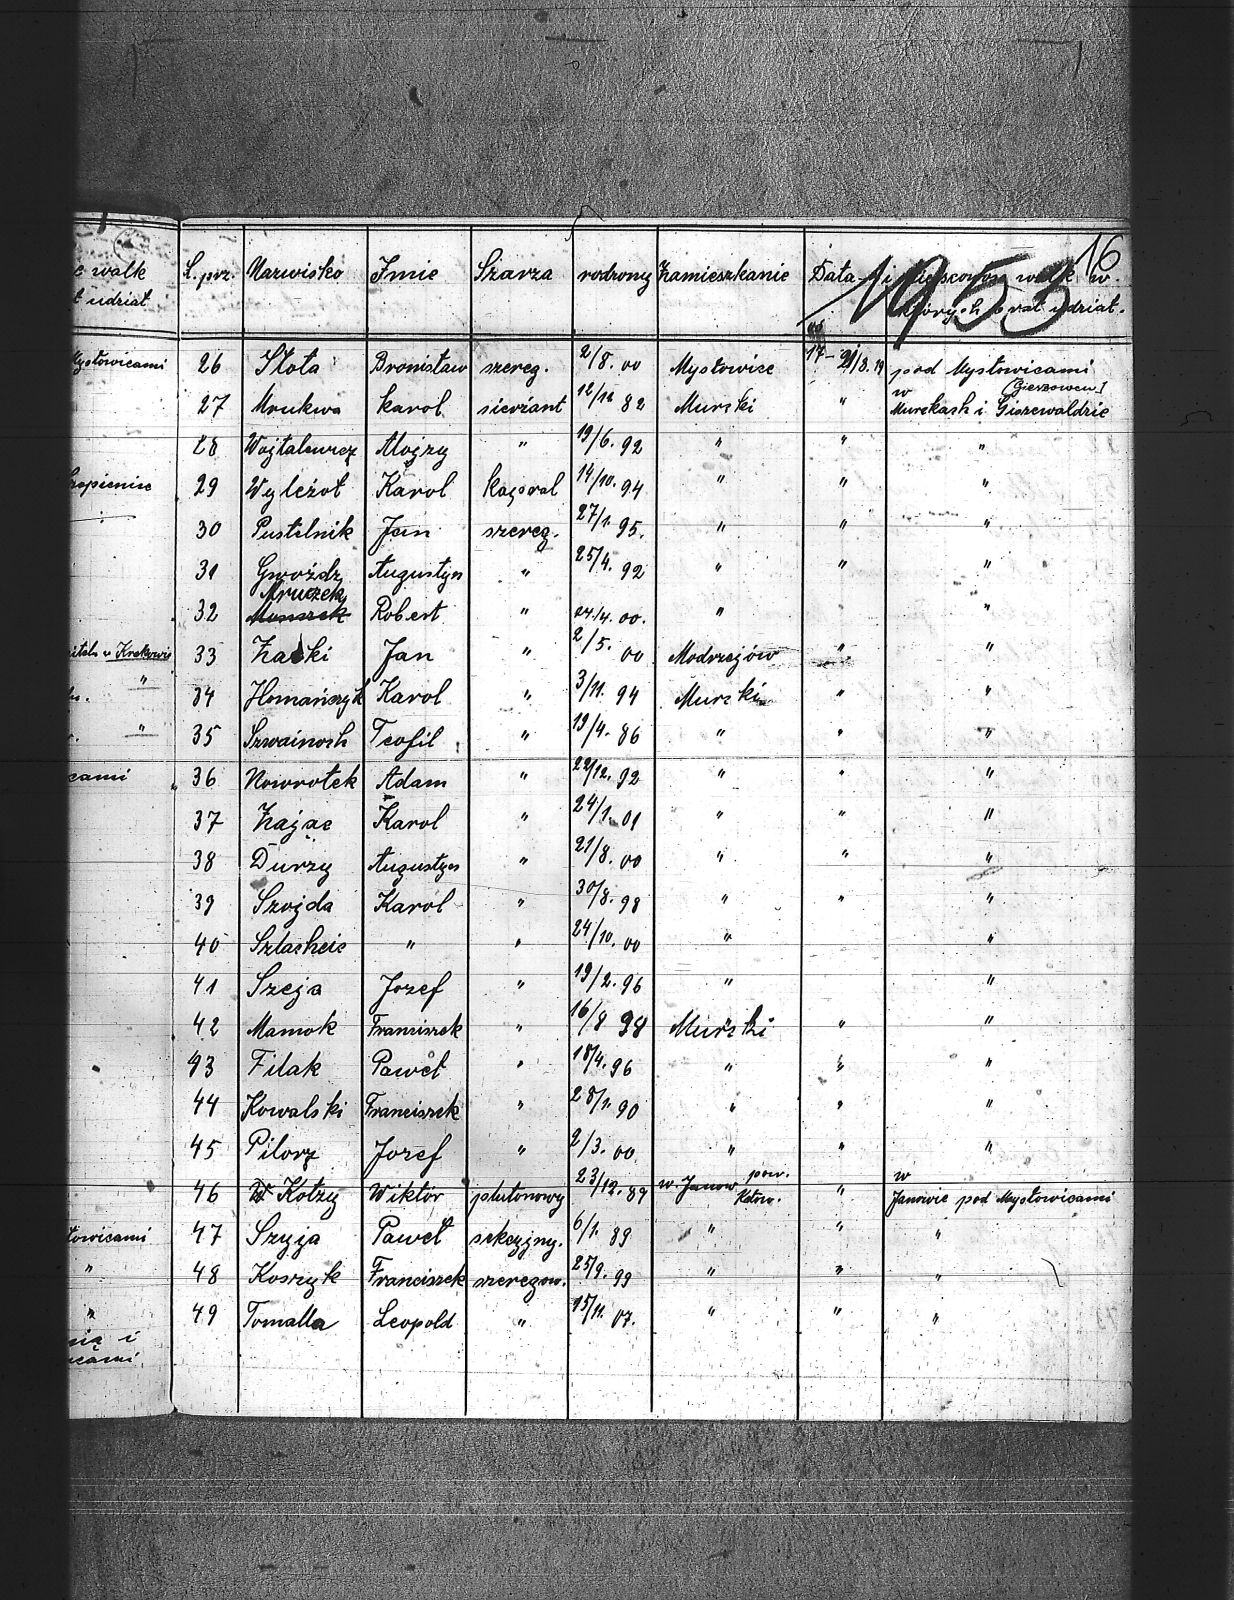 16
1953
walk
L. prz. Nazwisko Imie Szarza rodzony Zamieszkanie Data i miejscowość walk w
udział
których brał udział.
Mysłowicami 26 Słota Bronisław szereg. 2/8. 00 Mysłowice 17- 21/8. 19 pod Mysłowicami
27 Mrukwa Karol sierżant 12/12 82 Murcki " w Murckach i Giszewaldzie
28 Wojtalewicz Alojzy " 19/6. 92 " " "
29 Wyleżoł Karol kapral 14/10. 94 " " "
30 Pustelnik Jan szereg. 27/1. 95. " " "
31 Gwoźdz Augustyn " 25/4. 92 " " "
Mruczek
32 Robert " 24/4. 00. " "
w Krakowie 33 Jan " 2/5. 00 Modrzejów " "
" 34 Homańczyk Karol " 3/11. 94 Murcki " "
" 35 Szwainoch Teofil " 19/4. 86 " " "
36 Nowrotek Adam " 22/12. 92 " " "
37 Zając Karol " 24/1. 01 " " "
38 Durzy Augustyn " 21/8. 00 " " "
39 Szojda Karol " 30/8. 98 " " "
40 Szlacheic " " 24/10. 00 " "
41 Szeja Jozef " 19/2. 96 " "
42 Mamok Franciszek " 16/8 98 Murcki " "
43 Filak Paweł " 18/4. 96 " " "
44 Kowalski Franciszek " 28/1. 90 " " "
45 Pilorz Jozef " 2/3. 00 " " "
46 Kotzy Wiktór plutonowy 23/12. 89 w. Janow pow. Katow. " w Janowie pod Mysłowicami
47 Szyja Paweł sekcyjny. 6/1. 89 " " "
" 48 Koszyk Franciszek szeregow. 25/9. 99 " " "
" 49 Tomalla Leopold " 15/11. 07. " " "
i